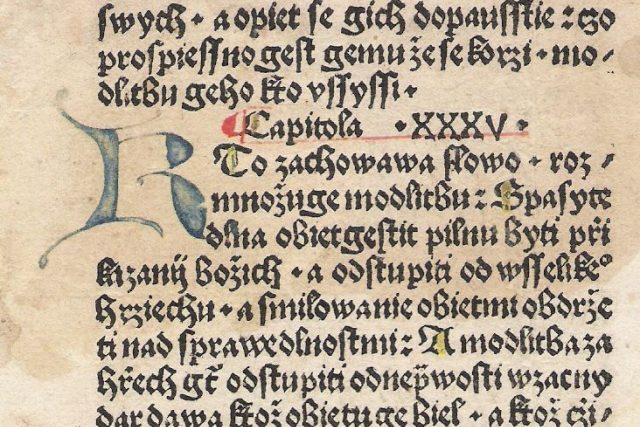 swych · a opiet se gich dopausstie : czo
prospiessno gest gemu že se korzi · mo⸗
dlitbu geho kto vslyssi ·
¶ Capitola · XXXV ·
K To zachowawa slowo · roz⸗
množuge modlitbu : Spasyte
dlna obiet gestit pilnu byti při
kazanij božich · a odstupiti od wsselikeº
hrziechu · a smilowanie obietmi obdrže
ti nad sprawedlnostmi : A modlitba za
hřech gt̃ odstupiti od neṗwosti w zacny
dar dawa ktož obietuge biel · a ktož czi⸗